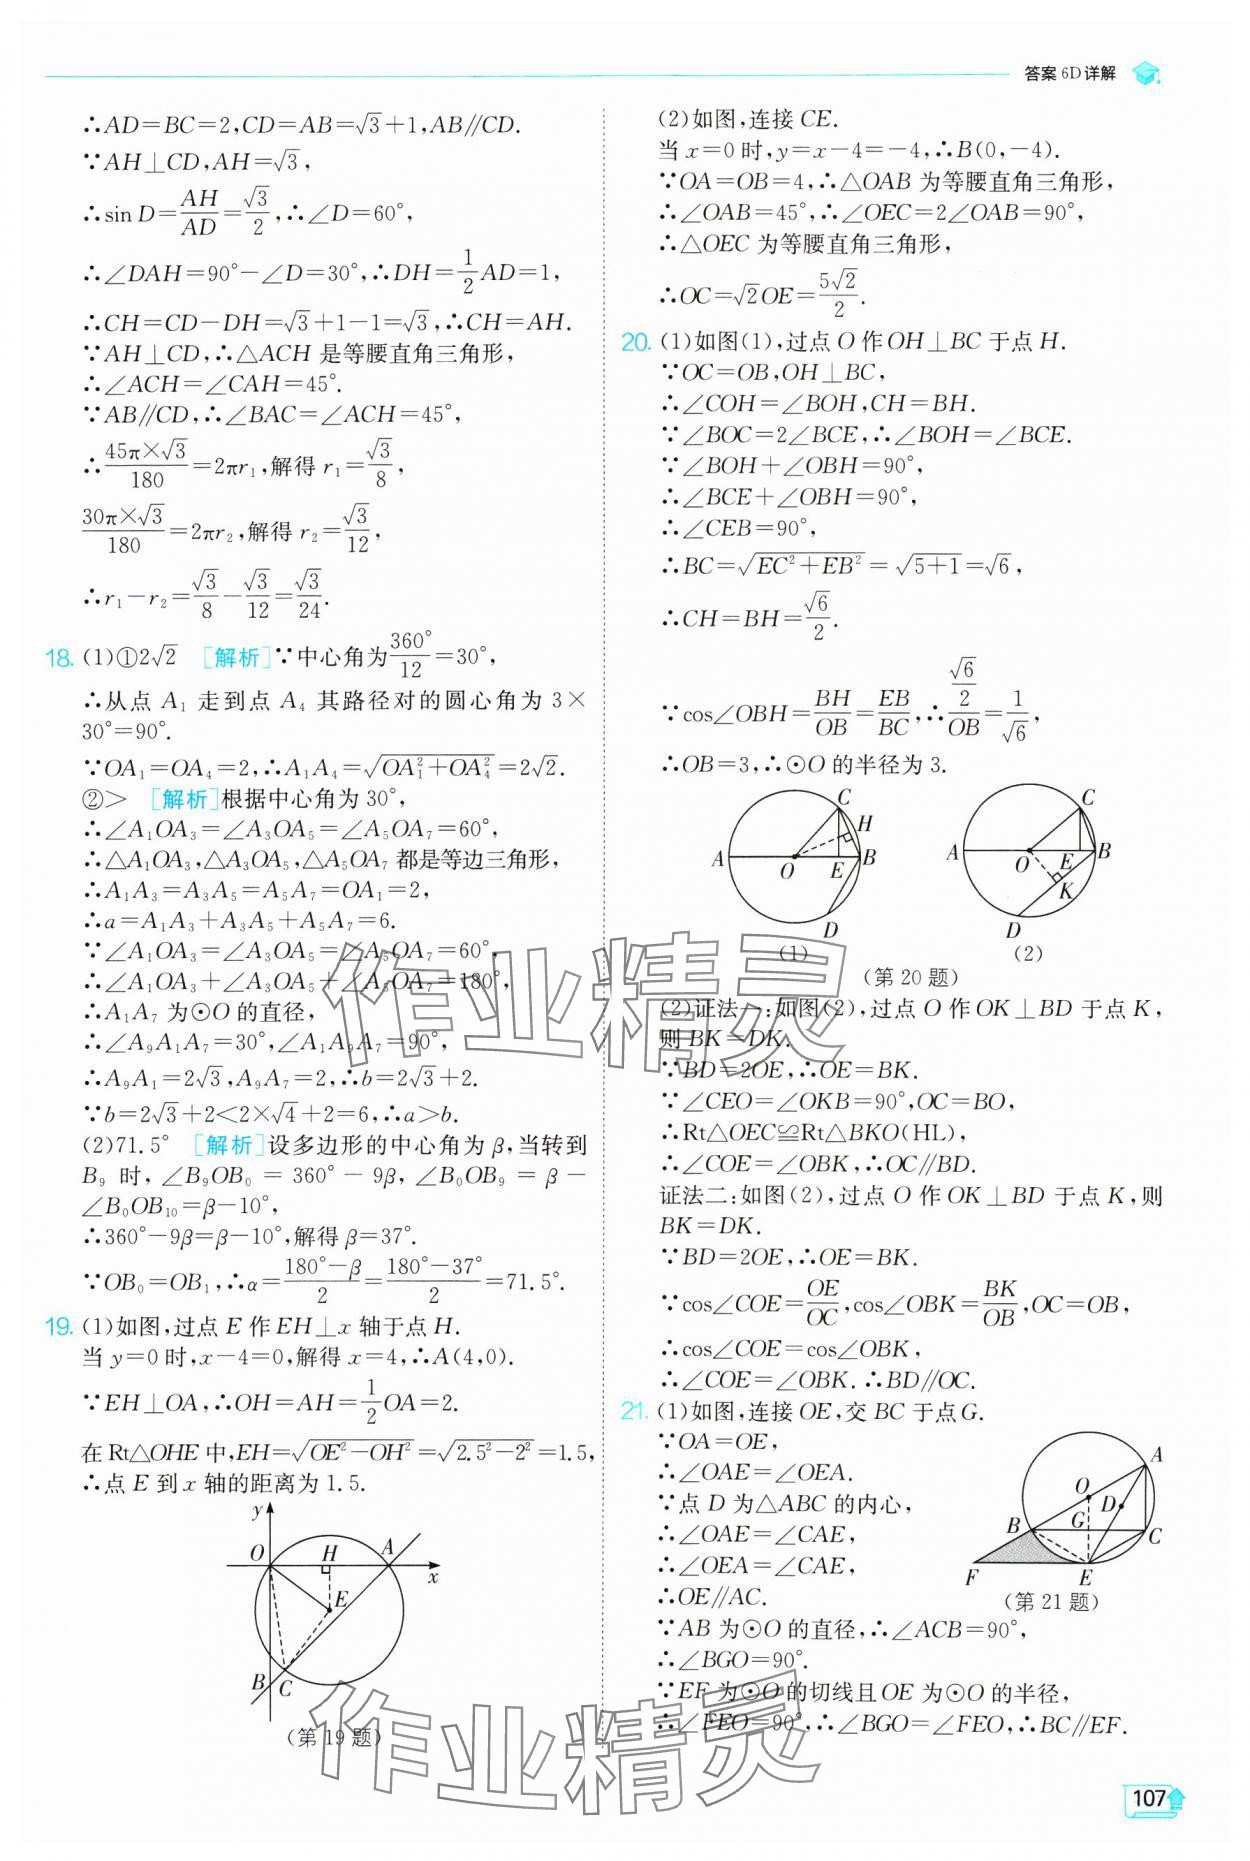 答案 6D 详解
∴AD=BC=2,CD=AB=√3+1,AB∥CD.
∵AH⊥CD,AH=√3,
∴sin D=AH/AD=√3/2,∴∠D=60°,
∴∠DAH=90°-∠D=30°,∴DH=1/2AD=1,
∴CH=CD-DH=√3+1-1=√3,∴CH=AH.
∵AH⊥CD,∴△ACH 是等腰直角三角形,
∴∠ACH=∠CAH=45°.
∵AB∥CD,∴∠BAC=∠ACH=45°,
∴45π×√3/180=2πr₁,解得 r₁=√3/8,
30π×√3/180=2πr₂,解得 r₂=√3/12,
∴r₁-r₂=√3/8-√3/12=√3/24.
18. (1)①2√2 [解析]∵中心角为360°/12=30°,
∴从点 A₁ 走到点 A₄ 其路径对的圆心角为 3×
30°=90°.
∵OA₁=OA₄=2,∴A₁A₄=√(OA₁²+OA₄²)=2√2.
②> [解析]根据中心角为 30°,
∴∠A₁OA₃=∠A₃OA₅=∠A₅OA₇=60°,
∴△A₁OA₃,△A₃OA₅,△A₅OA₇ 都是等边三角形,
∴A₁A₃=A₃A₅=A₅A₇=OA₁=2,
∴a=A₁A₃+A₃A₅+A₅A₇=6.
∵∠A₁OA₃=∠A₃OA₅=∠A₅OA₇=60°,
∴∠A₁OA₃+∠A₃OA₅+∠A₅OA₇=180°,
∴A₁A₇ 为⊙O 的直径,
∴∠A₉A₁A₇=30°,∠A₁A₉A₇=90°,
∴A₉A₁=2√3,A₉A₇=2,∴b=2√3+2.
∵b=2√3+2<2×√4+2=6,∴a>b.
(2)71.5° [解析]设多边形的中心角为 β,当转到
B₉ 时,∠B₉OB₀=360°-9β,∠B₀OB₉=β-
∠B₀OB₁₀=β-10°,
∴360°-9β=β-10°,解得 β=37°.
∵OB₀=OB₁,∴α=(180°-β)/2=(180°-37°)/2=71.5°.
19. (1)如图,过点 E 作 EH⊥x 轴于点 H.
当 y=0 时,x-4=0,解得 x=4,∴A(4,0).
∵EH⊥OA,∴OH=AH=1/2OA=2.
在 Rt△OHE 中,EH=√(OE²-OH²)=√(2.5²-2²)=1.5,
∴点 E 到 x 轴的距离为 1.5.
y
O H A
x
E
B C
(第 19 题)
(2)如图,连接 CE.
当 x=0 时,y=x-4=-4,∴B(0,-4).
∵OA=OB=4,∴△OAB 为等腰直角三角形,
∴∠OAB=45°,∴∠OEC=2∠OAB=90°,
∴△OEC 为等腰直角三角形,
∴OC=√2OE=5√2/2.
20. (1)如图(1),过点 O 作 OH⊥BC 于点 H.
∵OC=OB,OH⊥BC,
∴∠COH=∠BOH,CH=BH.
∵∠BOC=2∠BCE,∴∠BOH=∠BCE.
∵∠BOH+∠OBH=90°,
∴∠BCE+∠OBH=90°,
∴∠CEB=90°,
∴BC=√(EC²+EB²)=√(5+1)=√6,
∴CH=BH=√6/2.
∵cos∠OBH=BH/OB=EB/BC,∴(√6/2)/OB=1/√6,
∴OB=3,∴⊙O 的半径为 3.
C
H
A O E B
D
(1)
C
A O E B
K
D
(2)
(第 20 题)
(2)证法一:如图(2),过点 O 作 OK⊥BD 于点 K,
则 BK=DK.
∵BD=2OE,∴OE=BK.
∵∠CEO=∠OKB=90°,OC=BO,
∴Rt△OEC≌Rt△BKO(HL),
∴∠COE=∠OBK,∴OC∥BD.
证法二:如图(2),过点 O 作 OK⊥BD 于点 K,则
BK=DK.
∵BD=2OE,∴OE=BK.
∵cos∠COE=OE/OC,cos∠OBK=BK/OB,OC=OB,
∴cos∠COE=cos∠OBK,
∴∠COE=∠OBK.∴BD∥OC.
21. (1)如图,连接 OE,交 BC 于点 G.
∵OA=OE,
∴∠OAE=∠OEA.
∵点 D 为△ABC 的内心,
∴∠OAE=∠CAE,
∴∠OEA=∠CAE,
∴OE∥AC.
∵AB 为⊙O 的直径,∴∠ACB=90°,
∴∠BGO=90°.
∵EF 为⊙O 的切线且 OE 为⊙O 的半径,
∴∠FEO=90°,∴∠BGO=∠FEO,∴BC∥EF.
A
O
D
B G C
F E
(第 21 题)
作业精灵
作业精灵
107